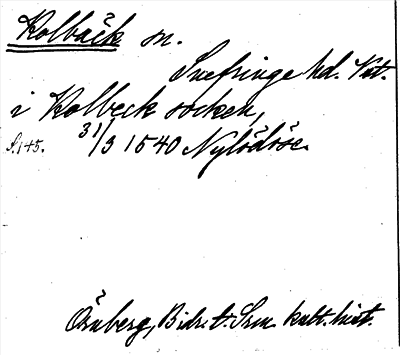 Kolbäck sn.
Snefringe hd. Vstm.
i Kolbeck socken,
S. 145. 31/3 1540 Nylödöse.
Örnberg, Bidr. t. Srm. kult. hist.